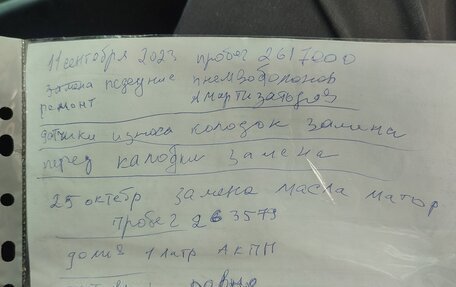 11 сентября 2023 пробег 2617000
замена педедние пнемзоболонов
ремонт Амортизатодоз
датчики износа колодок замена
перед калодки замена
25 октебр замена масла матор
пробег 263573
долив 1 латр АКПН
равно